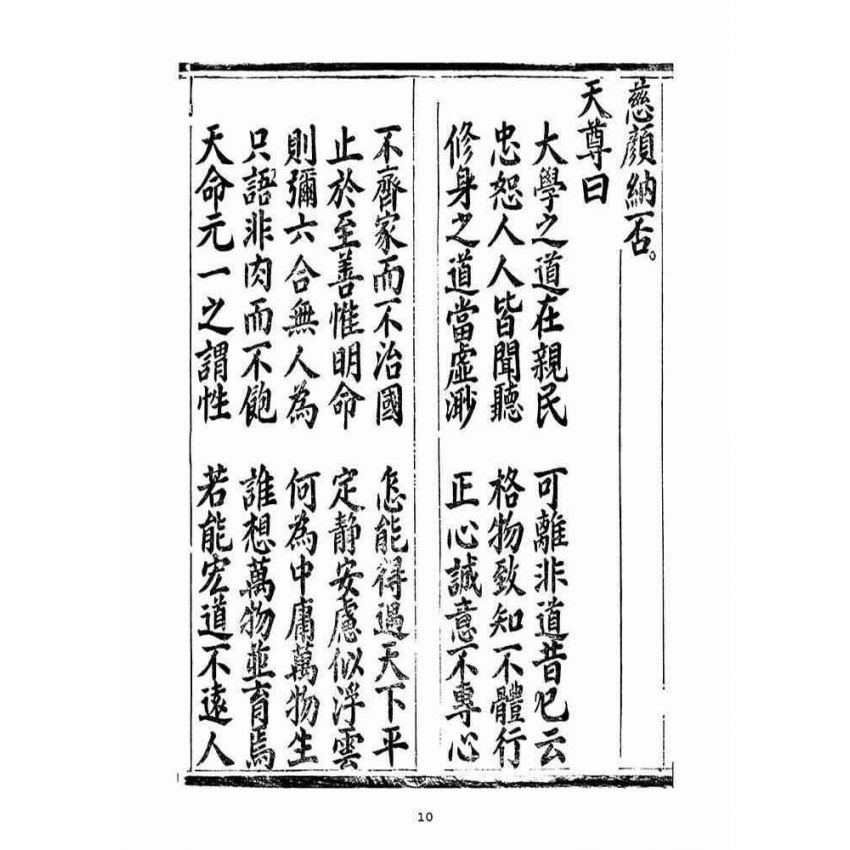 慈顏納一否。
天尊曰
大學之道在親民 可離非道昔已云
忠恕人人皆聞聽 格物致知不體行
修身之道當虛渺 正心誠意不專心
不齊家而不治國 怎能得過天下平
止於至善惟明命 定靜安慮似浮雲
則彌六合無人為 何為中庸萬物生
只語非肉而不飽 誰想萬物並育焉
天命元一之謂性 若能宏道不遠人
10